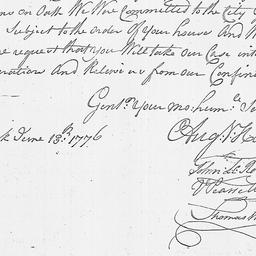 ns on Oath We Were Committed to the City
Subject to the order Of your house And W
request that you Will take our Case into
eration And Relieve from our Confin
Gent.n Your mo: hum.le Se
k June 13th: 1776
Aug.t
John
Thomas